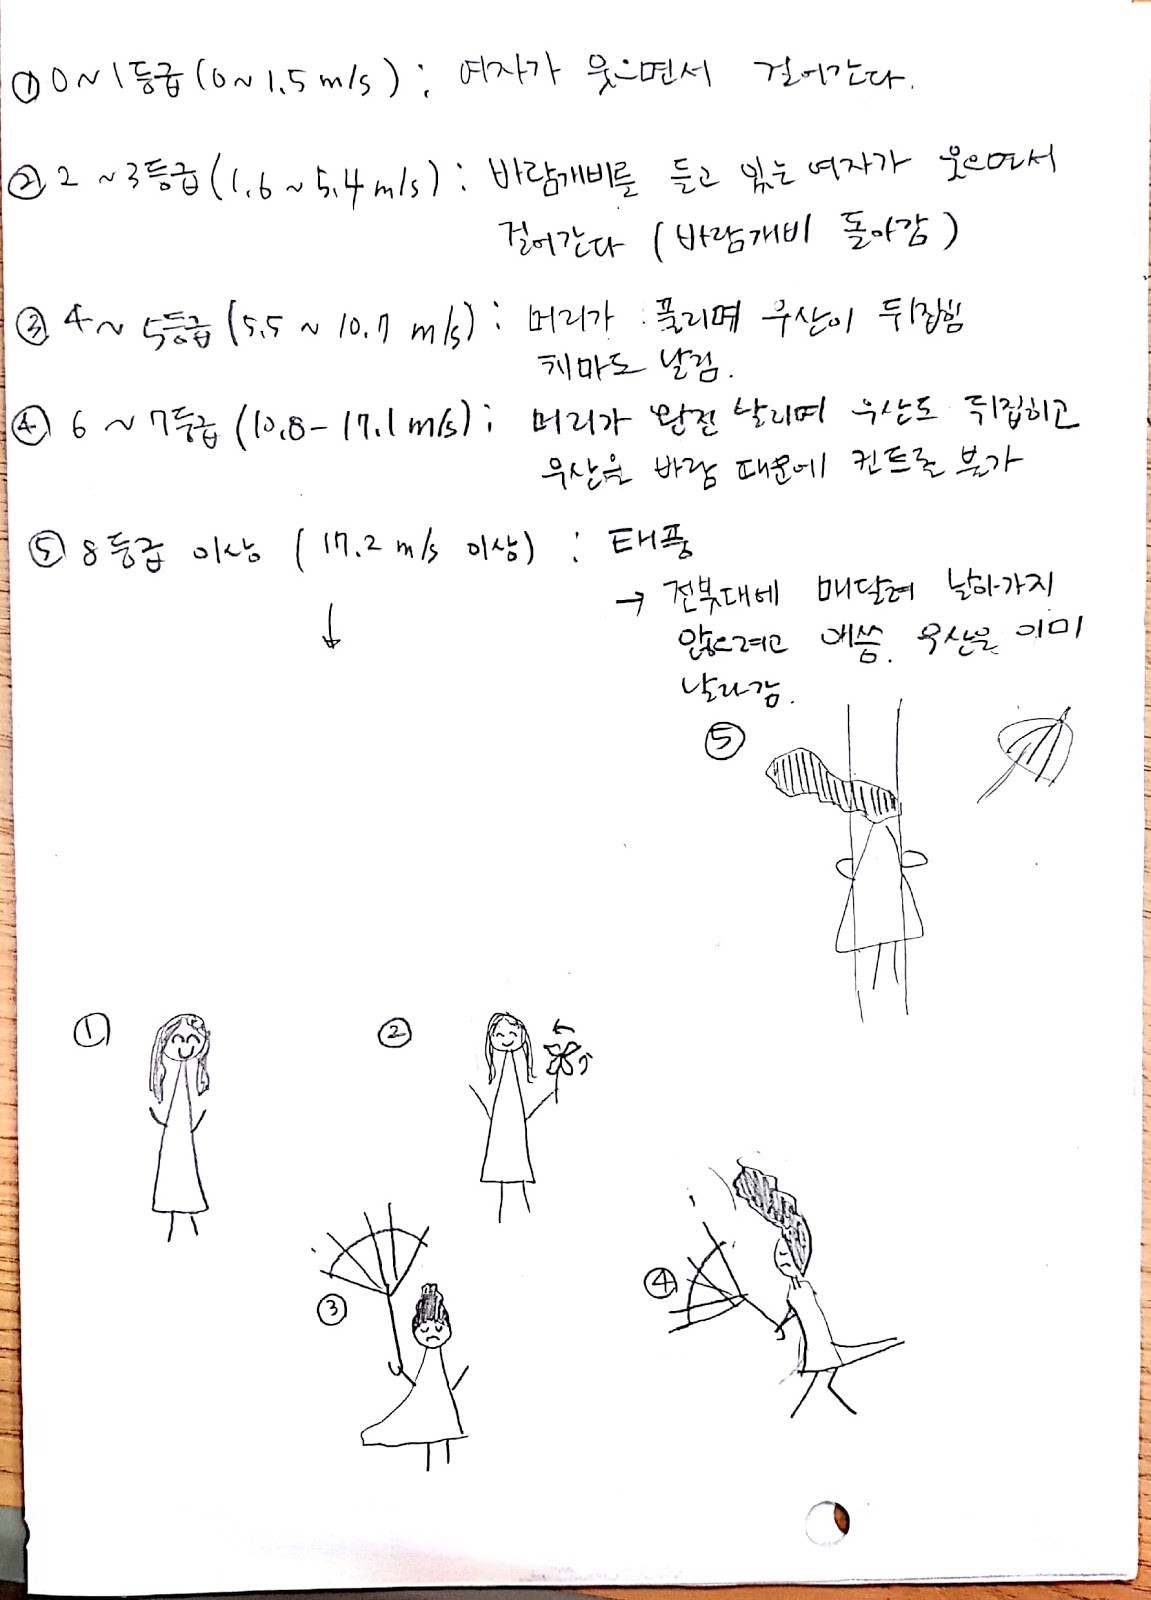 ① 0~1등급(0~1.5 m/s): 여자가 웃으면서 걸어간다.
② 2~3등급(1.6~5.4 m/s): 바람개비를 들고 있는 여자가 웃으면서
걸어간다 (바람개비 돌아감)
③ 4~5등급(5.5~10.7 m/s): 머리가 풀리며 우산이 뒤집힘
치마도 날림.
④ 6~7등급(10.8-17.1 m/s): 머리가 완전 날리며 우산도 뒤집히고
우산을 바람 때문에 컨트롤 불가
⑤ 8등급 이상 (17.2 m/s 이상): 태풍
→ 전봇대에 매달려 날아가지
않으려고 애씀. 우산은 이미
날라감.
⑤
①
②
③
④